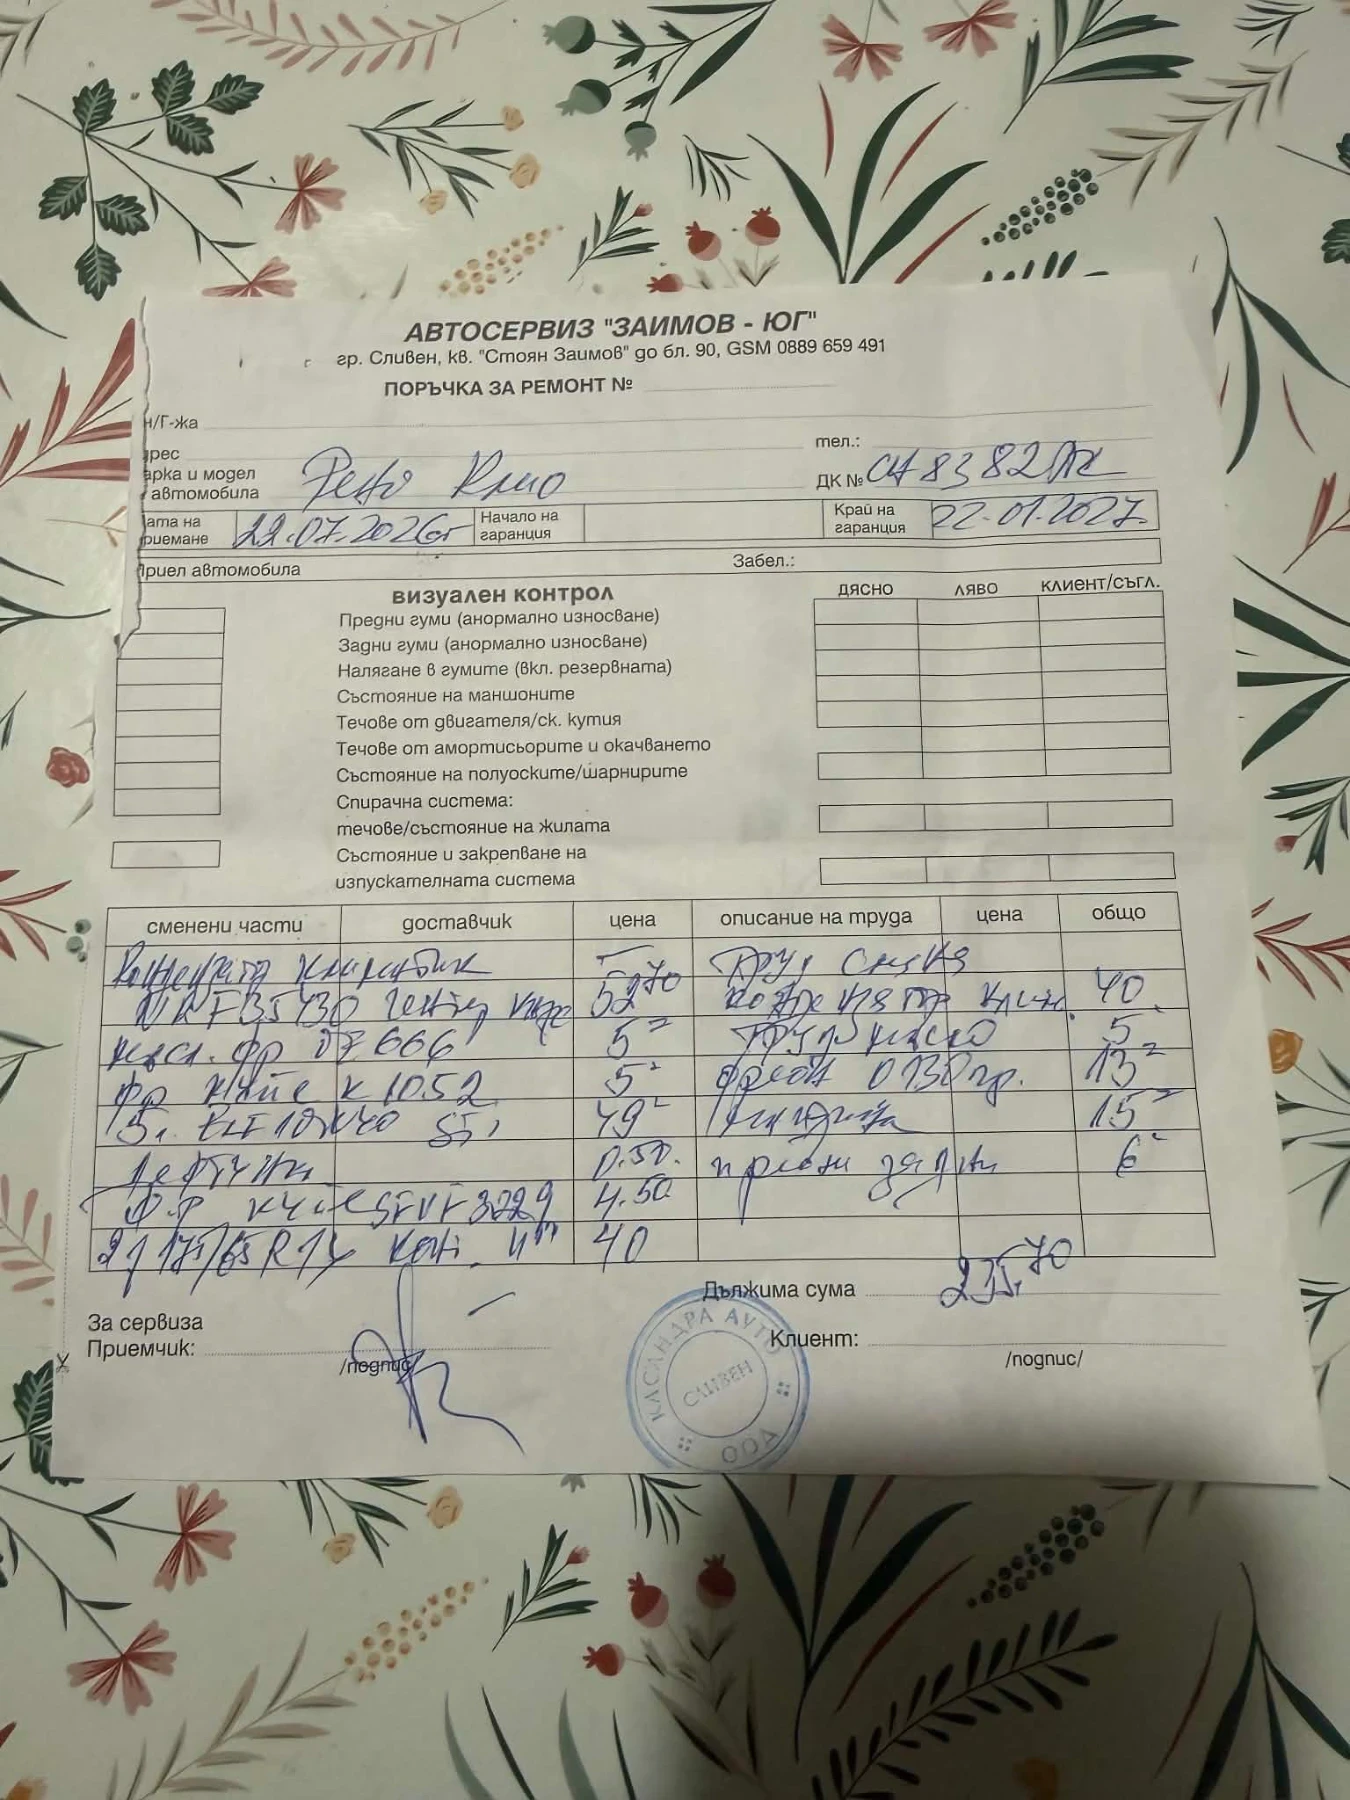 АВТОСЕРВИЗ "ЗАИМОВ - ЮГ"
гр. Сливен, кв. "Стоян Заимов" до бл. 90, GSM 0889 659 491
ПОРЪЧКА ЗА РЕМОНТ №
н/Г-жа
дрес тел.:
арка и модел
автомобила Рено Клио ДК № СН 8382 АК
ата на
риемане 22.07.2026г Начало на
гаранция Край на
гаранция 22.01.2027г.
Приел автомобила Забел.:
ВИЗУАЛЕН КОНТРОЛ ДЯСНО ЛЯВО КЛИЕНТ/СЪГЛ.
Предни гуми (анормално износване)
Задни гуми (анормално износване)
Налягане в гумите (вкл. резервната)
Състояние на маншоните
Течове от двигателя/ск. кутия
Течове от амортисьорите и окачването
Състояние на полуоските/шарнирите
Спирачна система:
течове/състояние на жилата
Състояние и закрепване на
изпускателната система
сменени части доставчик цена описание на труда цена общо
климатик – Труд смяна
NRF 35430 52 70 климат. 40
масл. фр OE 666 5 = Труд масло 5
фр К1052 5 = фреон 0.130гр. 13 =
5л. ELF 10W40 49 = 15 =
0.50. задни 6
фр 3229 4.50
2 175/65 R14 40
Дължима сума 235.70
За сервиза
Приемчик: Клиент:
/подпис /подпис/
КАСАНДРА АУТО ООД
СЛИВЕН